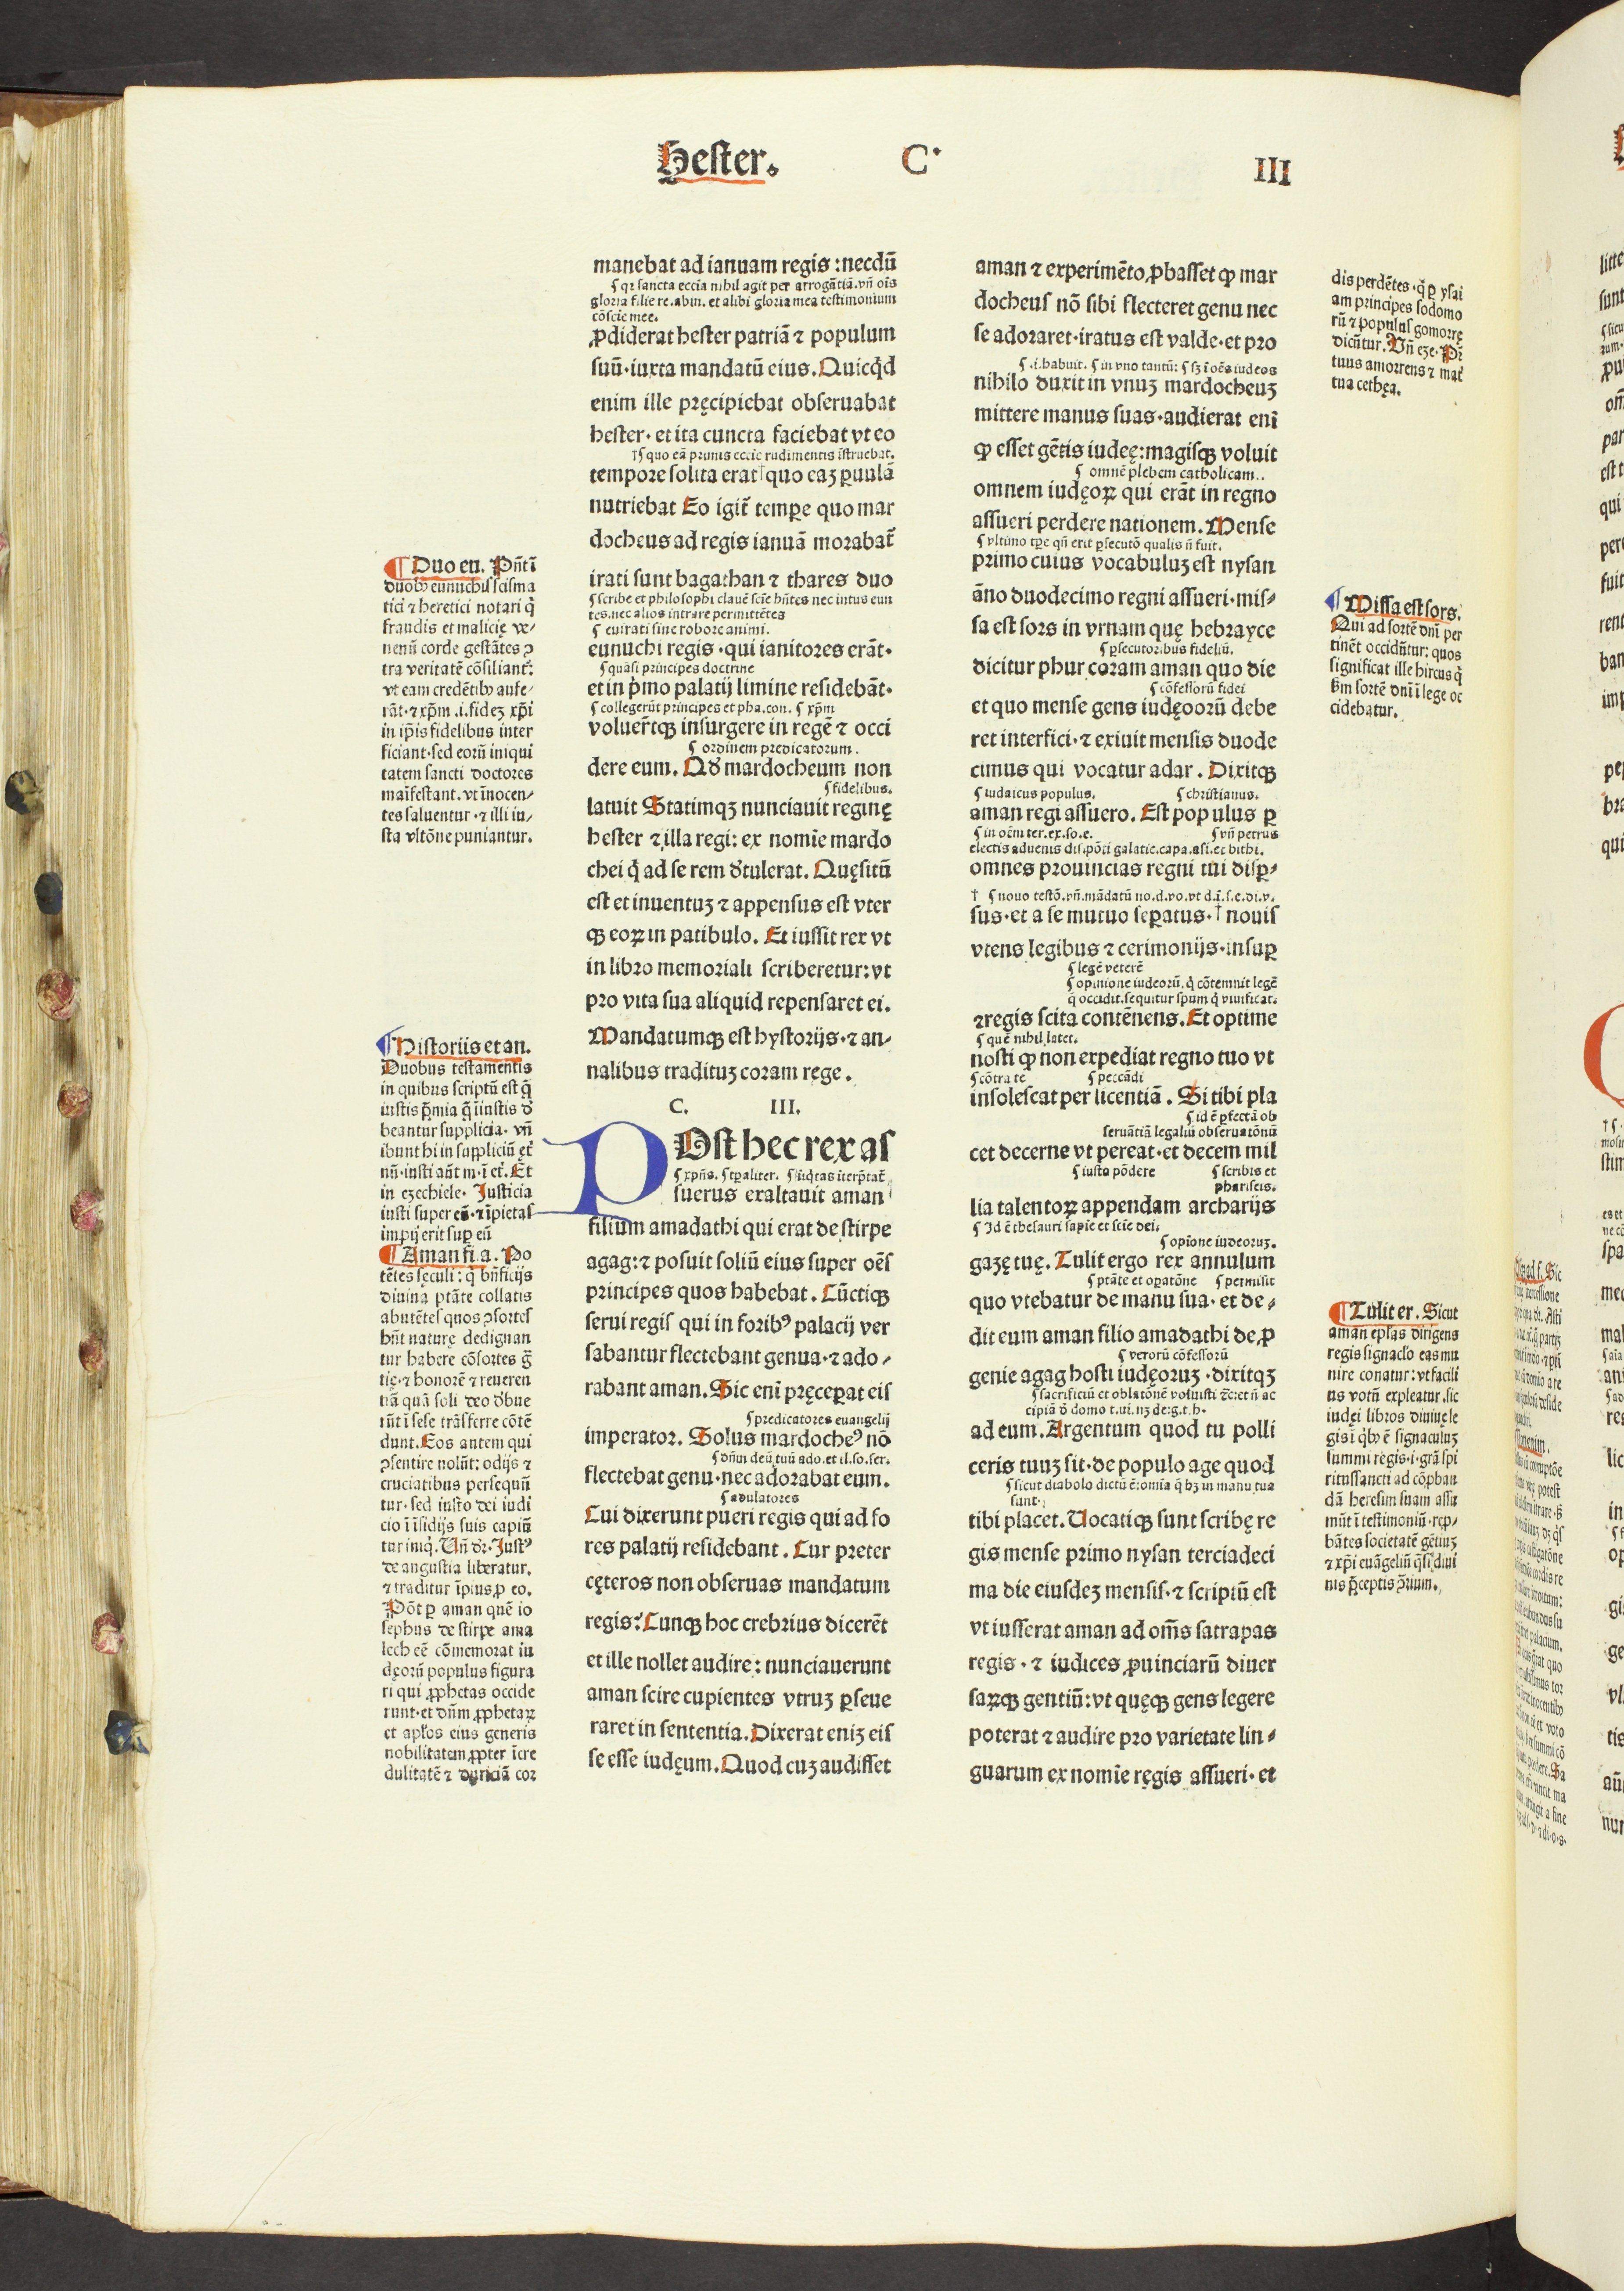 Hester. C· III
manebat ad ianuam regis : necdū
¶ qr sancta eccia nihil agit per arrogātiā.vñ ois
gloria filie re.abin. et alibi gloria mea testimonium
cōscie mee.
ꝓdiderat hester patriā ⁊ populum
suū·iuxta mandatū eius. Quicq̇d
enim ille pręcipiebat obseruabat
hester· et ita cuncta faciebat vt eo
†¶ quo eā primis eccie rudimentis īstruebat.
tempore solita erat†quo eaꝫ ꝑuulā
nutriebat Eo igit̄ temꝑe quo mar
docheus ad regis ianuā morabat̄
irati sunt bagathan ⁊ thares duo
¶ scribe et philosophi clauē scīe hn̄tes nec intus eun
tes.nec alios intrare permittētes
¶ euirati sine robore animi.
eunuchi regis · qui ianitores erāt·
¶ quasi principes doctrine
et in p̄mo palatij limine residebāt·
¶ collegerūt principes et pha.con. ¶ xp̄m
voluer̄tqꝫ insurgere in regē ⁊ occi
¶ ordinem predicatorum.
dere eum. Qď mardocheum non
¶ fidelibus.
latuit Statimqꝫ nunciauit reginę
hester ⁊ illa regi: ex nomīe mardo
chei q̇ ad se rem ďtulerat. Quęsitū
est et inuentuꝫ ⁊ appensus est vter
qꝫ eoꝝ in patibulo. Et iussit rex vt
in libro memoriali scriberetur: vt
pro vita sua aliquid repensaret ei.
Mandatumqꝫ est hystorijs · ⁊ an-
nalibus tradituꝫ coram rege.
C. III.
POst hec rex as
¶ xp̄ns. ¶ tꝑaliter. ¶ īiq̇tas īterp̄tat̄
suerus exaltauit aman
filium amadathi qui erat de stirpe
agag: ⁊ posuit soliū eius super oēs
principes quos habebat. Cūctiqꝫ
serui regis qui in foribꝰ palacij ver
sabantur flectebant genua · ⁊ ado-
rabant aman. Sic enī pręceꝑat eis
¶ predicatores euangelij
imperator. Solus mardocheꝰ nō
¶ dn̄m deū tuū ado.et il.so.ser.
flectebat genu · nec adorabat eum.
¶ adulatores
Cui dixerunt pueri regis qui ad fo
res palatij residebant. Cur preter
cęteros non obseruas mandatum
regis? Cunqꝫ hoc crebrius dicerēt
et ille nollet audire: nunciauerunt
aman scire cupientes vtruꝫ ꝑseue
raret in sententia. Dixerat eniꝫ eis
se esse iudęum. Quod cuꝫ audisset
aman ⁊ experimēto ꝓbasset ꝙ mar
docheus nō sibi flecteret genu nec
se adoraret · iratus est valde · et pro
¶ .i.habuit. ¶ in vno tantū: ¶ sꝫ ī oēs iudeos
nihilo duxit in vnuꝫ mardocheuꝫ
mittere manus suas · audierat enī
ꝙ esset gētis iudeę: magisqꝫ voluit
¶ omnē plebem catholicam..
omnem iudęoꝝ qui erāt in regno
assueri perdere nationem. Mense
¶ vltimo tꝑe qn̄ erit ꝑsecutō qualis n̄ fuit.
primo cuius vocabuluꝫ est nysan
āno duodecimo regni assueri · mis-
sa est sors in vrnam quę hebrayce
¶ ꝑsecutoribus fideliū.
dicitur phur coram aman quo die
¶ cōfessorū fidei
et quo mense gens iudęoorū debe
ret interfici · ⁊ exiuit mensis duode
cimus qui vocatur adar. Dixitqꝫ
¶ iudaicus populus. ¶ christianus.
aman regi assuero. Est populus ꝑ
¶ in oēm ter.ex.so.e. ¶ vn̄ petrus
electis aduenis dis.pōti galatie.capa.asi.et bithi.
omnes prouincias regni tui disꝑ-
† ¶ nouo testō.vn̄.mādatū no.d.vo.vt d.ī.s.e.di.v.
sus · et a se mutuo seꝑatus · † nouis
vtens legibus ⁊ cerimonijs · insuꝑ
¶ legē veterē
¶ opinione iudeorū. q̇ cōtemnit legē
q̄ occidit.sequitur spum q̇ viuificat.
⁊ regis scita contēnens. Et optime
¶ quē nihil latet.
nosti ꝙ non expediat regno tuo vt
¶ cōtra te ¶ peccādi
insolescat per licentiā. Si tibi pla
¶ id ē ꝑfectā ob
seruātiā legaliū obseruatōnū
cet decerne vt pereat · et decem mil
¶ iusto pōdere ¶ scribis et
phariseis.
lia talentoꝝ appendam archarijs
¶ Id ē thesauri sapīe et scīe dei.
¶ opīone iudeoruꝫ.
gazę tuę. Tulit ergo rex annulum
¶ ptāte et oꝑatōne ¶ permisit
quo vtebatur de manu sua · et de-
dit eum aman filio amadathi de ꝓ
¶ verorū cōfessorū
genie agag hosti iudęoruꝫ · dixitqꝫ
¶ sacrificiū et oblatōnē voluisti ⁊c̄: et n̄ ac
cipiā ď domo t.vi.nꝫ de:g.t.h·
ad eum. Argentum quod tu polli
ceris tuuꝫ sit · de populo age quod
¶ sicut diabolo dictū ē: omīa q̄ hꝫ in manu tua
sunt·
tibi placet. Uocatiqꝫ sunt scribę re
gis mense primo nysan terciadeci
ma die eiusdeꝫ mensis · ⁊ scriptū est
vt iusserat aman ad om̄s satrapas
regis · ⁊ iudices ꝓuinciarū diuer
saꝝqꝫ gentiū: vt quęqꝫ gens legere
poterat ⁊ audire pro varietate lin-
guarum ex nomīe ręgis assueri · et
¶ Duo eu. Pn̄t ī
duobꝫ eunuchis scisma
tici ⁊ heretici notari q̇
fraudis et malicię ve-
nenū corde gestātes ↄ
tra veritatē cōsiliant̄:
vt eam credētibꝫ aufe-
rāt · ⁊ xp̄m .i. fideꝫ xp̄i
in ip̄is fidelibus inter
ficiant · sed eorū iniqui
tatem sancti doctores
maīfestant. vt īnocen-
tes saluentur · ⁊ illi iu-
sta vltōne puniantur.
¶ Historiis et an.
Duobus testamentis
in quibus scriptū est q̄
iustis p̄mia q̄ īiustis ď
beantur supplicia · vn̄
ibunt hi in suppliciū ęt̄
nū · iusti aūt in · ī et̄. Et
in ezechiele. Justicia
iusti super eū · ⁊ īpietas
impij erit suꝑ eū
¶ Aman fi. a. Po
tētes sęculi: q̇ bn̄ficijs
diuina ptāte collatis
abutētes quos ↄsortes
hn̄t naturę dedignan
tur habere cōsortes g̅
tię · ⁊ honorē ⁊ reueren
tiā quā soli deo ďbue
rūt ī sese trāsferre cōtē
dunt. Eos autem qui
ↄsentire nolūt: odijs ⁊
cruciatibus persequū
tur · sed iusto dei iudi
cio ī īsidijs suis capiū
tur iniq̇. Un̄ dr̄. Justꝰ
de angustia liberatur.
⁊ traditur īpius ꝓ eo.
Pōt ꝑ aman quē io
sephus de stirpe ama
lech eē cōmemorat iu
dęorū populus figura
ri qui ꝓphetas occide
runt · et dn̄m ꝓphetaꝝ
et ap̄los eius generis
nobilitatem ꝓpter īcre
dulitatē ⁊ duriciā cor
dis perdētes · q̄ ꝑ ysai
am principes sodomo
rū ⁊ populus gomorrę
dicūtur. Un̄ eze. Pr̄
tuus amorreus ⁊ mat̄
tua cethęa.
¶ Missa est sors.
Qui ad sortē dn̄i per
tinēt occidūtur: quos
significat ille hircus q̇
ẜm sortē dn̄i ī lege oc
cidebatur.
¶ Tulit er. Sicut
aman ep̄las dirigens
regis signaclo eas mu
nire conatur: vt facili
us votū expleatur. sic
iudęi libros diuinę le
gis ī q̇bꝫ ē signaculuꝫ
summi regis · i · grā spi
ritussancti ad cōꝓban
dā heresim suam assu
mūt ī testimoniū · rep-
bātes societatē gētiuꝫ
⁊ xp̄i euāgeliū q̄si diui
nis p̄ceptis ↄ̄rium.